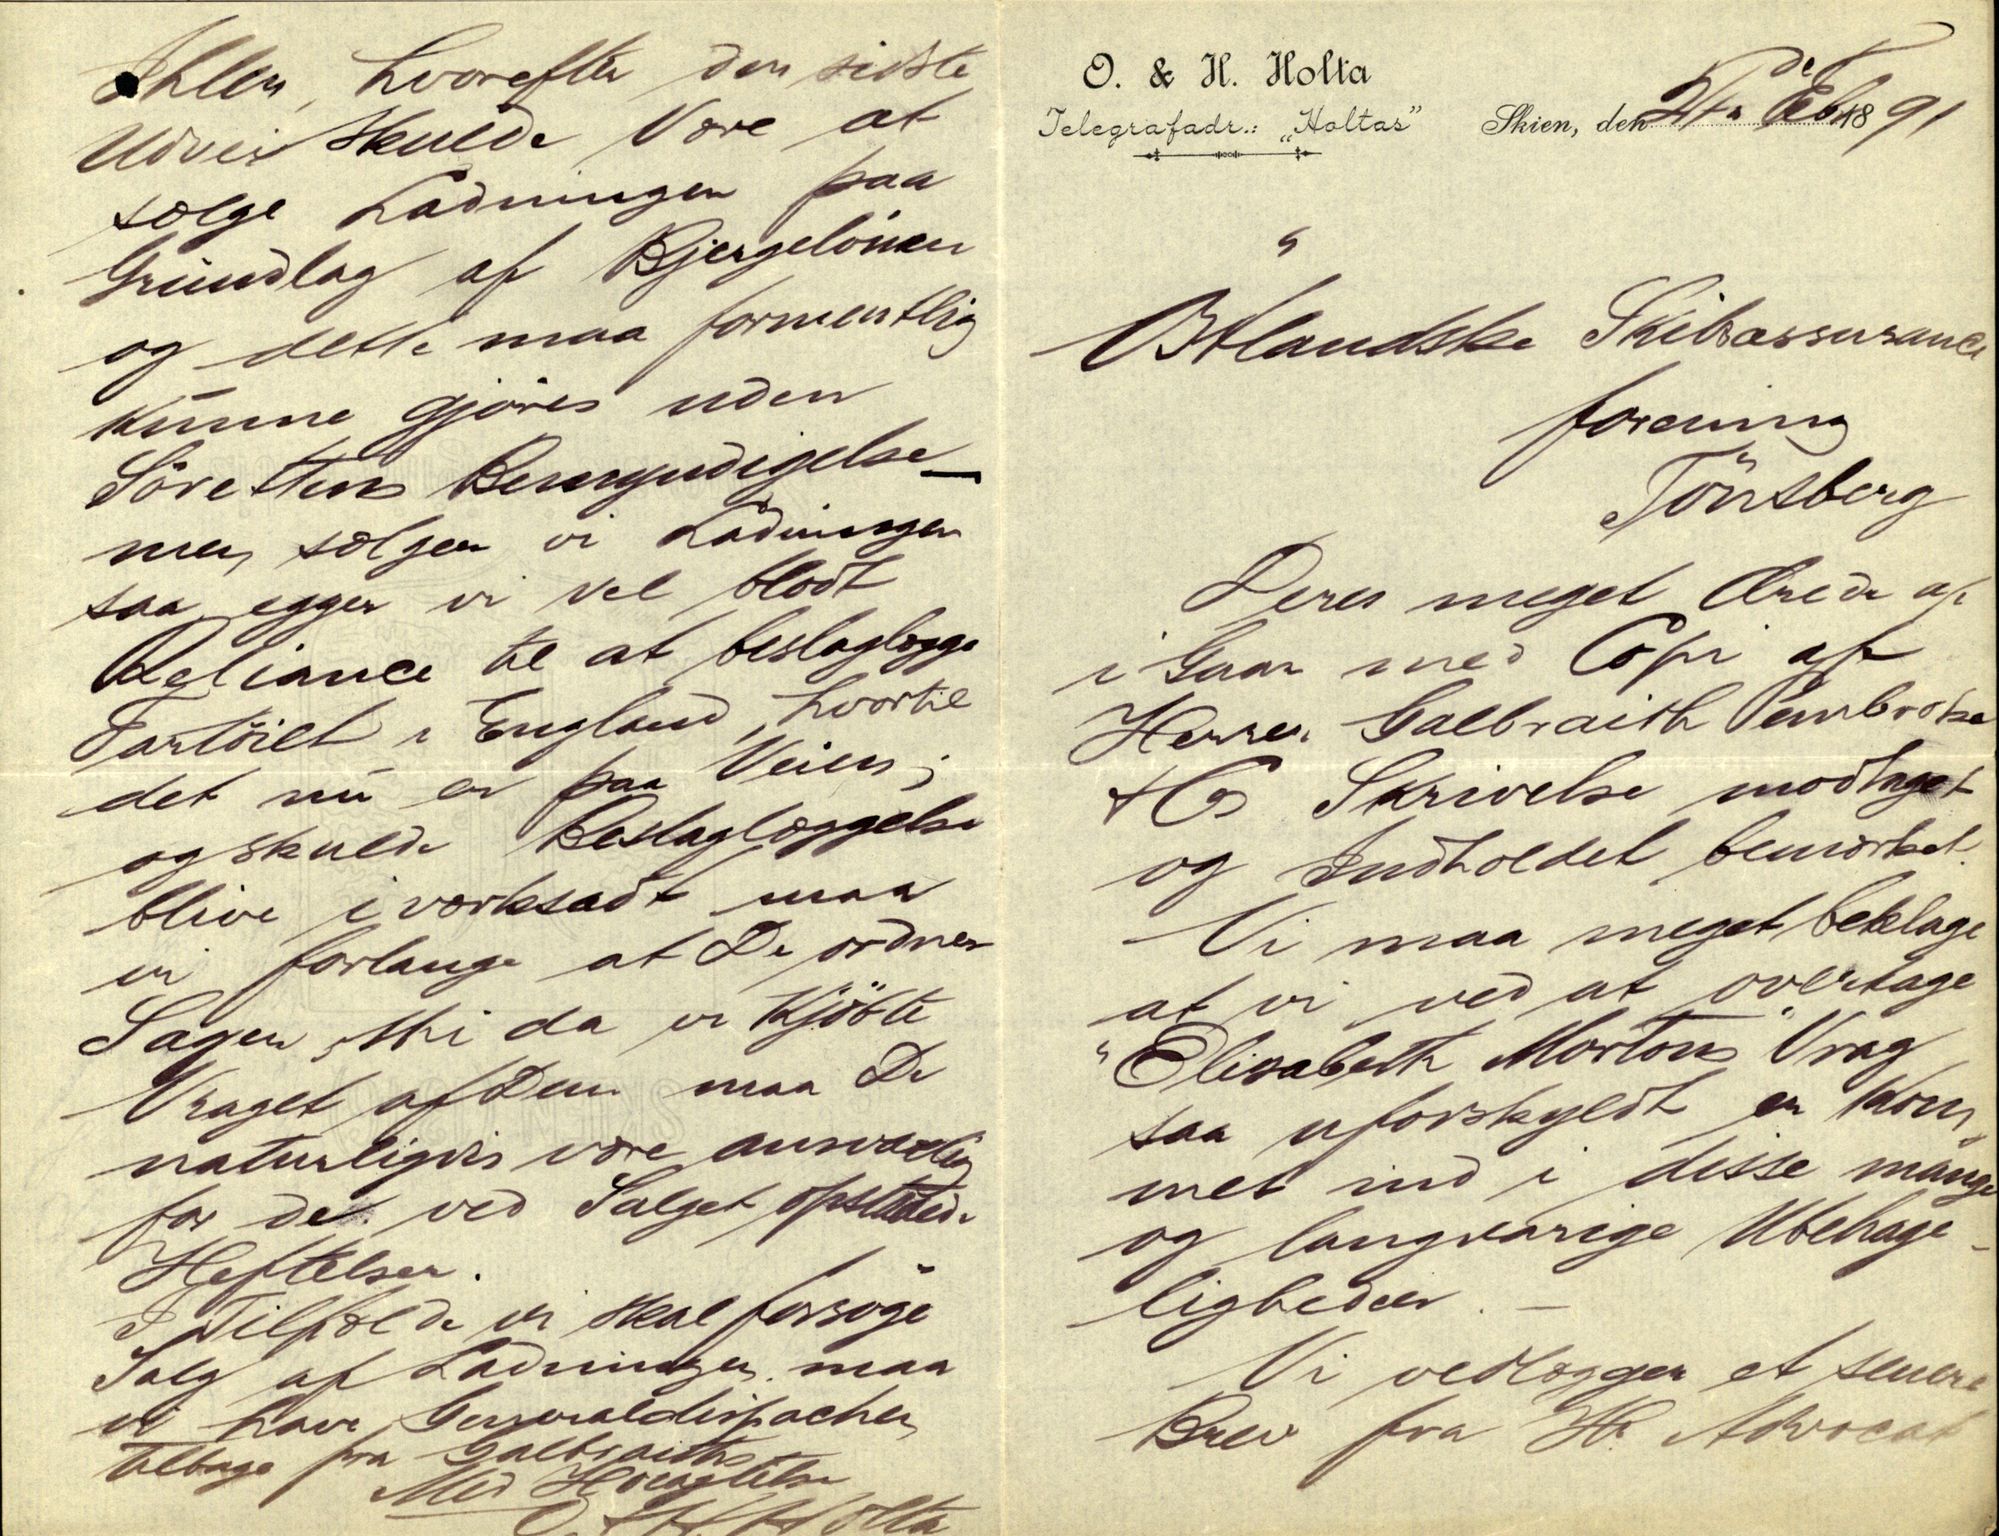 O. & H. Holta
Telegrafadr.: „Holtas”
Skien, den 27 de Feb. 1891
Østlandske Skibsassurance
forening
Tönsberg
Deres meget Ærede af
i Gaar med Copi af
Herrer Galbraith Pembroke
& Co Skrivelse modtaget
og Indholdet bemærket.
Vi maa meget beklage
at vi ved at overtage
"Elisabeth Mortons" Vrag
saa uforskyldt er kom
met ind i disse mange
og langvarige Ubehage-
ligheder. –
Vi vedlægger et senere
Brev fra Hr. Advocat
Ihlen, hvorefter den sidste
Udvei skulde være at
sælge Ladningen paa
Grundlag af Bjergelönnen
og dette maa formentlig
kunne gjöres uden
Sörettens Bemyndigelse –
men sælger vi Ladningen
saa egger vi vel blodt
Reliance til at beslaglægge
Fartöiet i England, hvortil
det nu er paa Veien;
og skulde Beslaglæggelse
blive iværksadt maa
vi forlange at De ordner
Sagen, thi da vi kjöbte
Vraget af Dem maa De
naturligvis være ansvarlig
for de ved Salget opstaaede
Heftelser.
I Tilfælde vi skal forsöge
Salg af Ladningen maa
vi have Generaldispachen
tilbage fra Galbraiths
Med Höiagtelse
O. & H. Holta